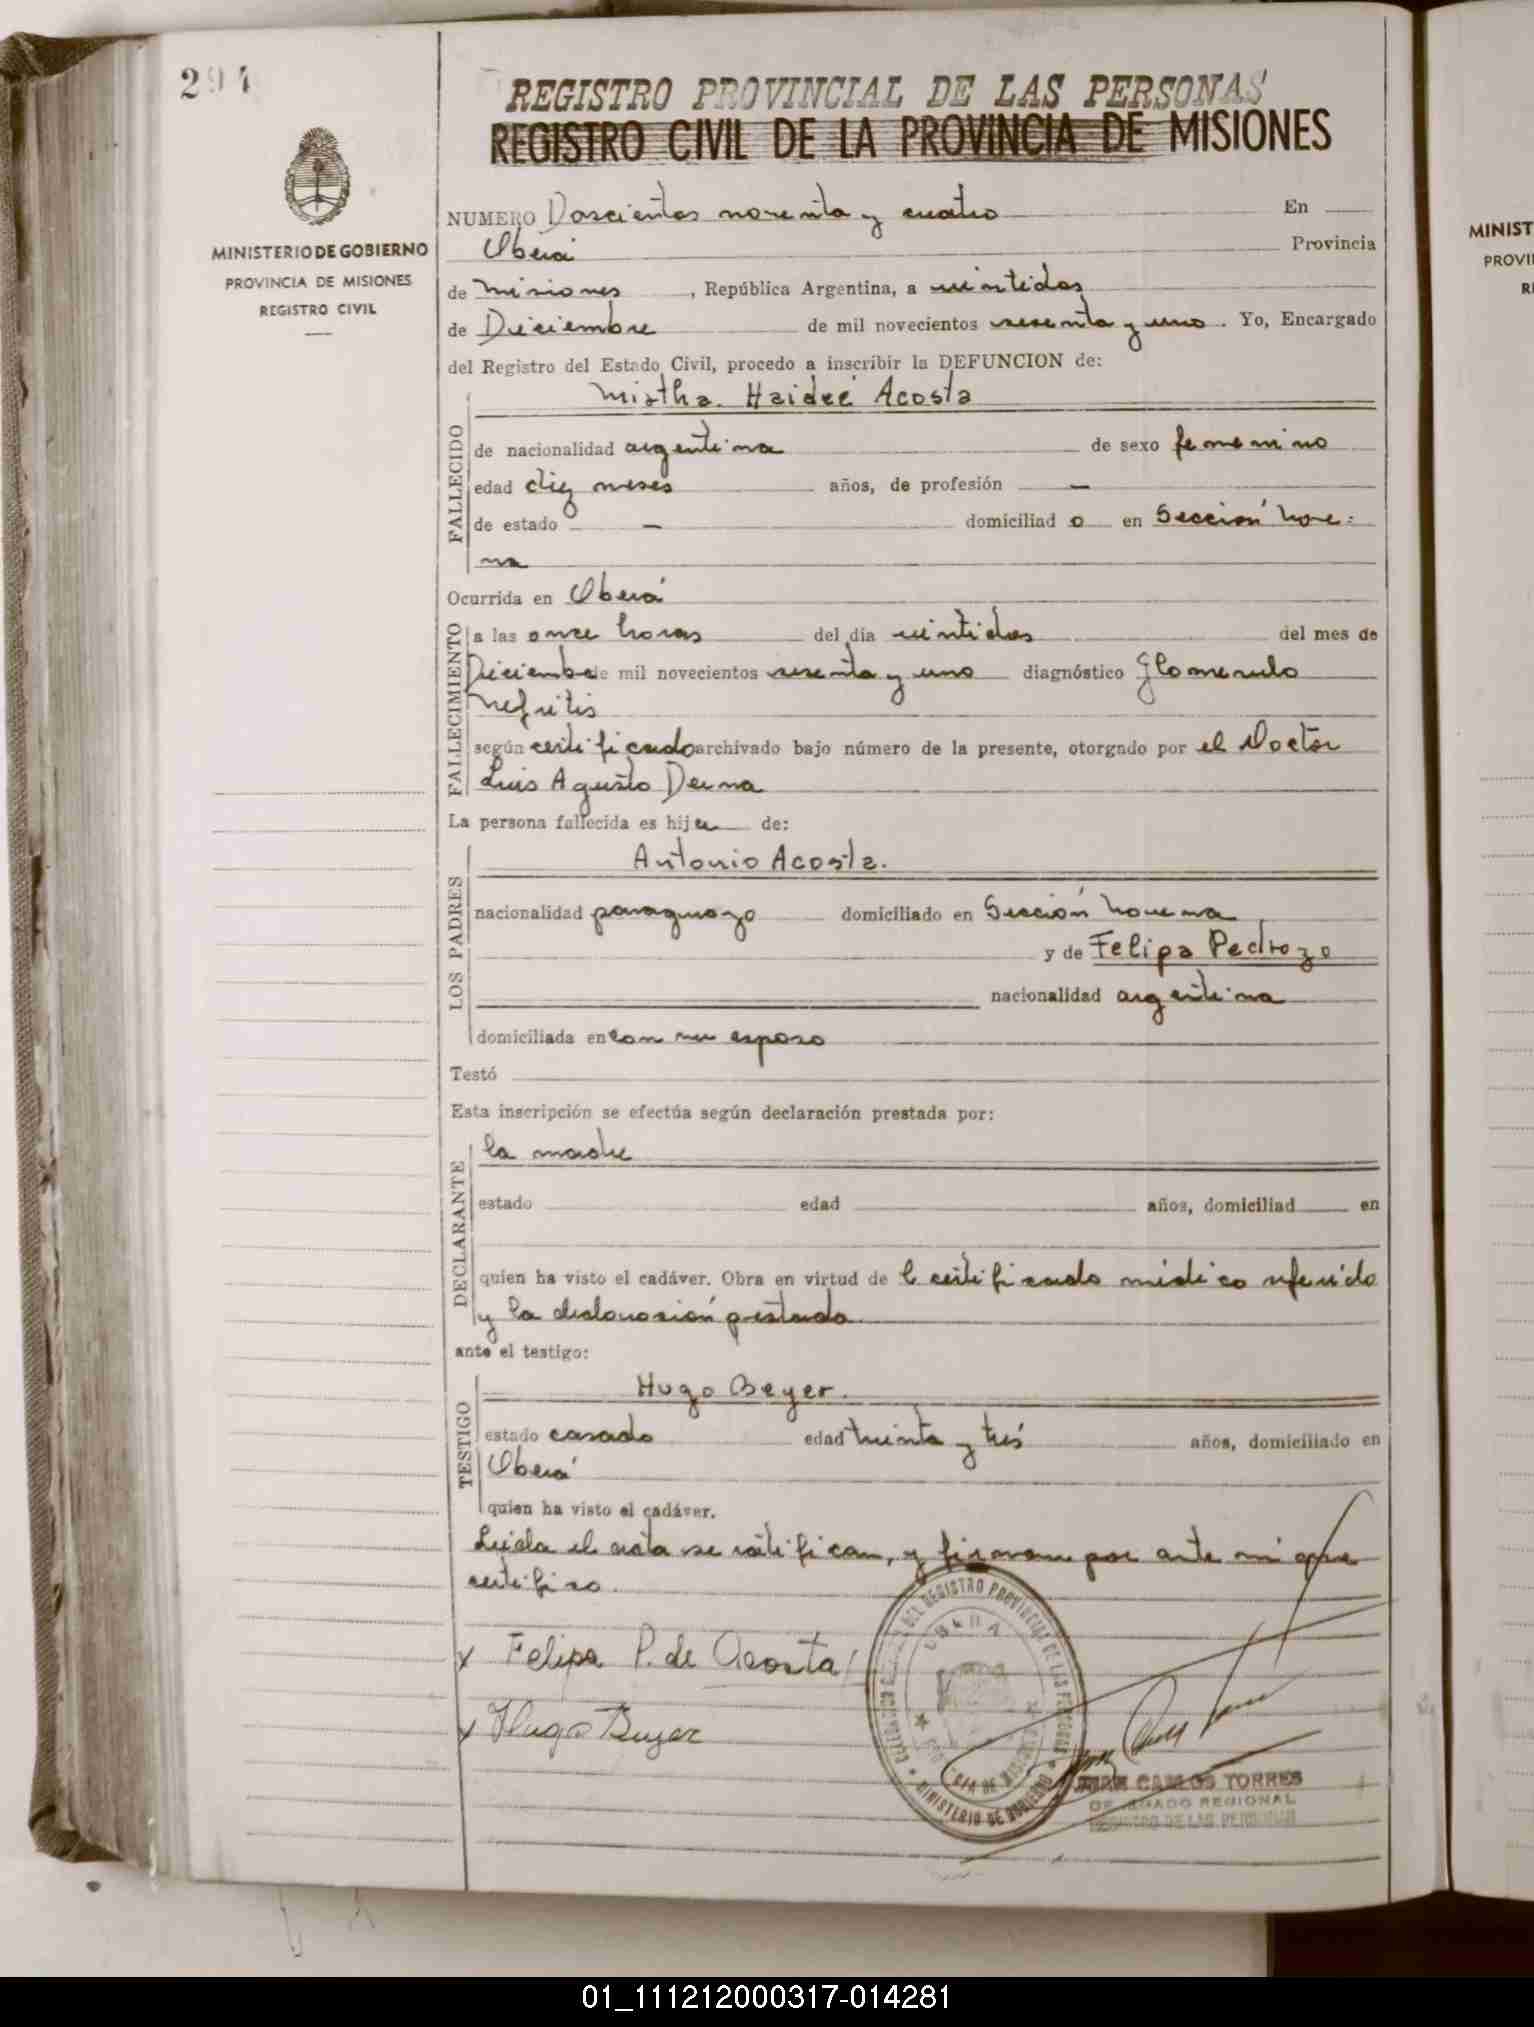 294
REGISTRO PROVINCIAL DE LAS PERSONAS
REGISTRO CIVIL DE LA PROVINCIA DE MISIONES
MINISTERIO DE GOBIERNO
PROVINCIA DE MISIONES
REGISTRO CIVIL
NUMERO Doscientos noventa y cuatro En
Oberá Provincia
de Misiones, República Argentina, a veintidos
de Diciembre de mil novecientos sesenta y uno. Yo, Encargado
del Registro del Estado Civil, procedo a inscribir la DEFUNCION de:
Mirtha Haideé Acosta
FALLECIDO
de nacionalidad argentina de sexo femenino
edad diez meses años, de profesión —
de estado — domiciliad o en Sección Nove=
na
Ocurrida en Oberá
FALLECIMIENTO
a las once horas del día veintidos del mes de
Diciembre de mil novecientos sesenta y uno diagnóstico Glomerulo
Nefritis
según certificado archivado bajo número de la presente, otorgado por el Doctor
Luis Agusto Derna
La persona fallecida es hija de:
LOS PADRES
Antonio Acosta.
nacionalidad paraguayo domiciliado en Sección Novena
y de Felipa Pedrozo
nacionalidad argentina
domiciliada en con su esposo
Testó
Esta inscripción se efectúa según declaración prestada por:
DECLARANTE
la madre
estado edad años, domiciliad en
quien ha visto el cadáver. Obra en virtud de l certificado médico referido
y la declaración prestada
ante el testigo:
TESTIGO
Hugo Beyer.
estado casado edad treinta y trés años, domiciliado en
Oberá
quien ha visto el cadáver.
Leida el acta se ratifican, y firman por ante mi que
certifico.
x Felipa P. de Acosta
x Hugo Beyer
DEL REGISTRO PROVINCIAL DE LAS PERSONAS
OBERA
PROVINCIA DE MISIONES
MINISTERIO DE GOBIERNO
JUAN CARLOS TORRES
DELEGADO REGIONAL
REGISTRO DE LAS PERSONAS
MINIST
PROVI
R
01_111212000317-014281